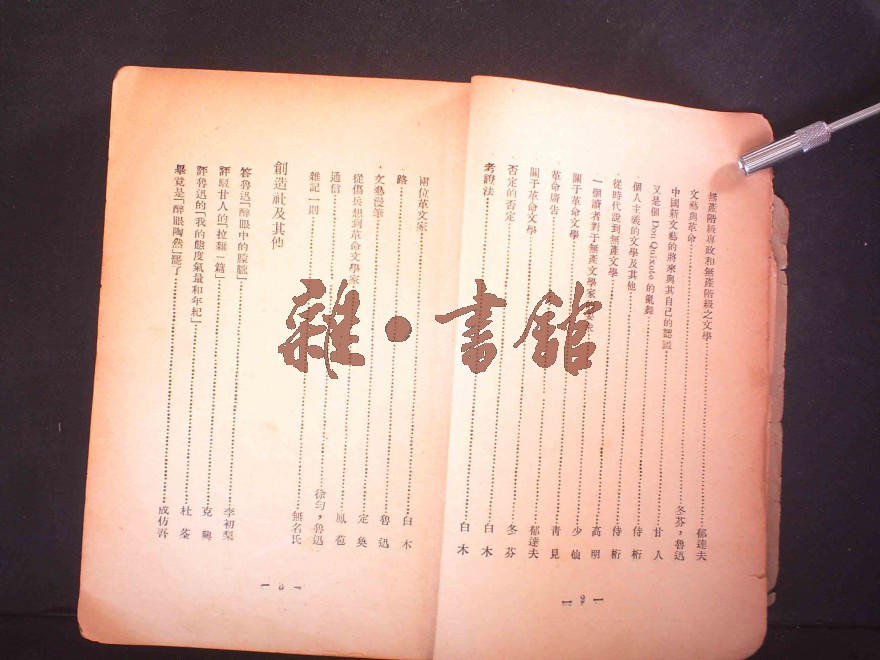 無產階級專政和無產階級之文學 郁達夫
文藝與革命 冬芬，魯迅
中國新文藝的將來與其自己的認識 甘人
又是個 Don Quixote 的亂舞 侍桁
個人主義的文學及其他 侍桁
從時代說到無產文學 高明
一個讀者對于無產文學家 少仙
關于革命文學 青見
革命廣告 郁達夫
關于革命文學 冬芬
否定的否定 白木
考證法 白木
— 2 —
兩位革文家 白木
路 魯迅
文藝漫筆 定奐
從傷兵想到革命文學家 鳳苞
通信 徐勻，魯迅
雜記一則 無名氏
創造社及其他
答魯迅「醉眼中的朦朧」 李初梨
評駁甘人的「拉雜一篇」 克興
評魯迅的「我的態度氣量和年紀」 杜荃
畢竟是「醉眼陶然」罷了 成仿吾
— 3 —
雜·書館